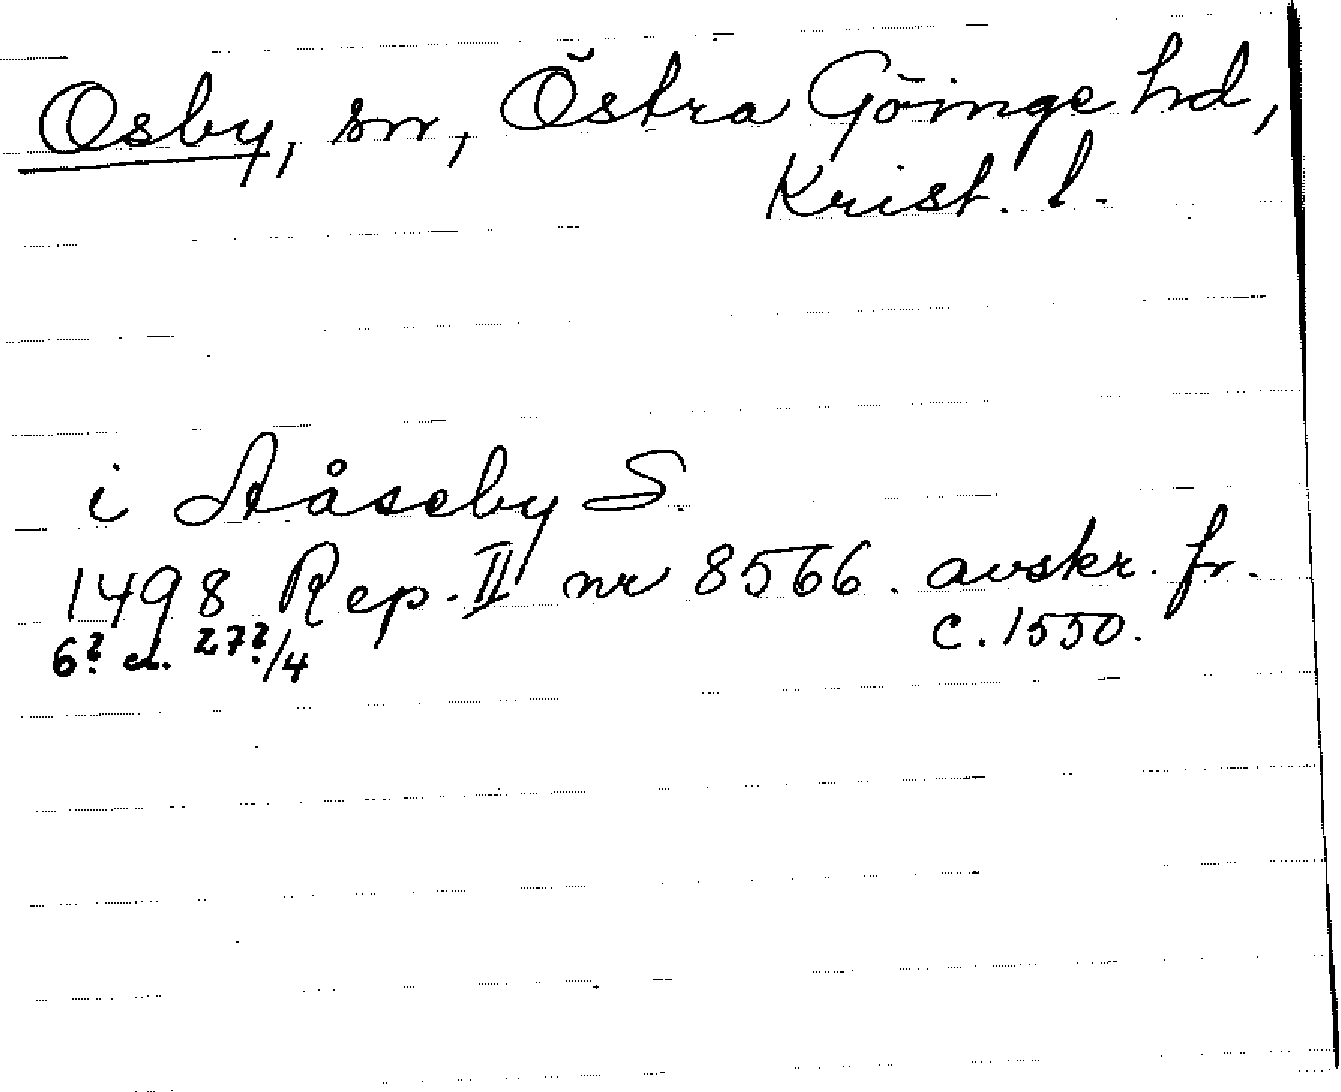 Osby, sn, Östra Göinge hd,
Krist. l.
i Aåseby S
1498 Rep. II nr 8566. avskr. fr.
6? el. 27?/4 c. 1550.